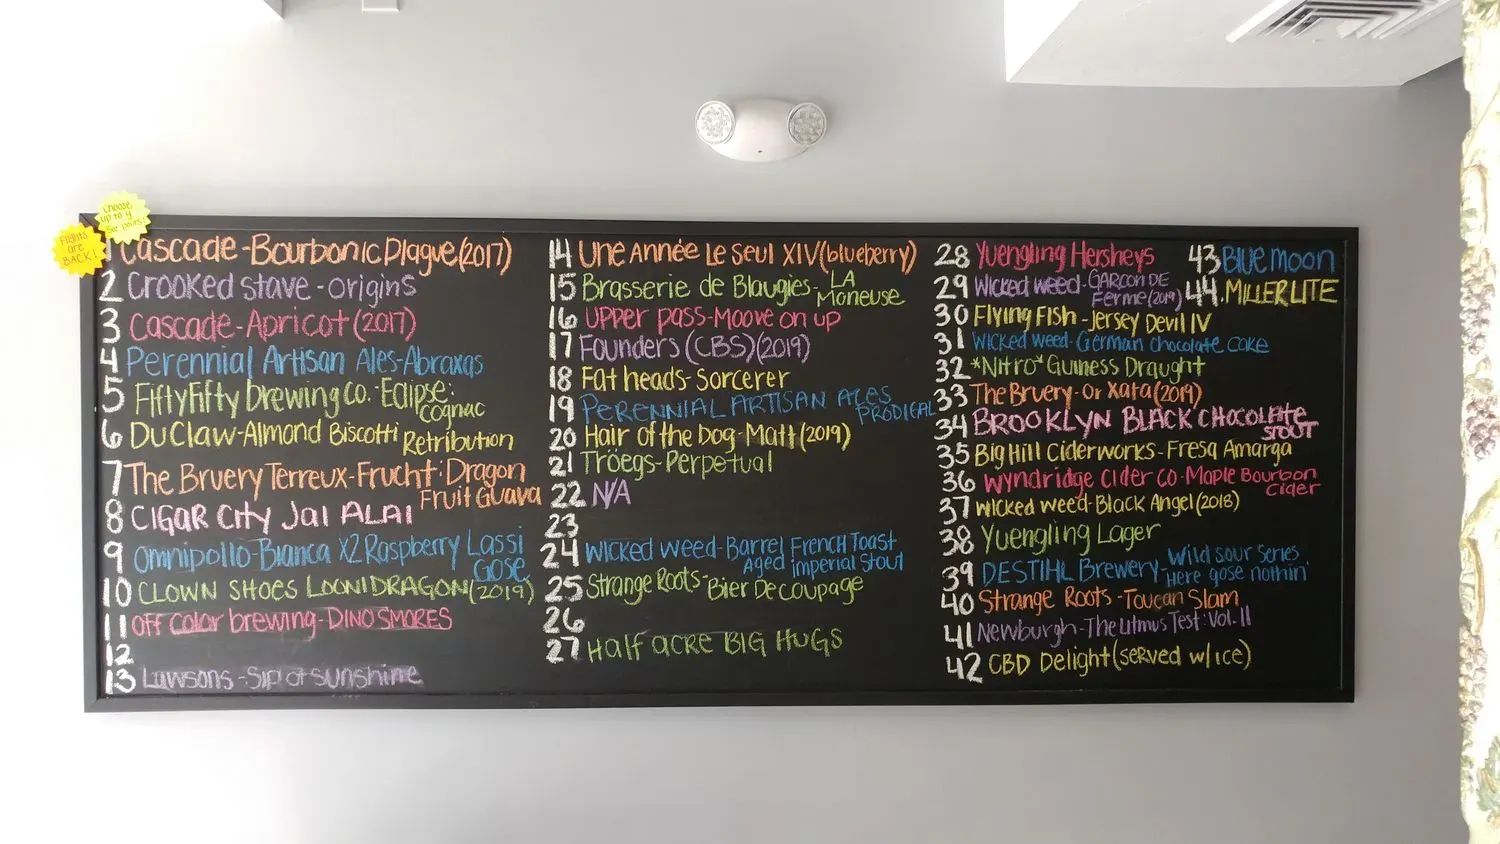 Choose
up to 4
5oz pours!
Flights
are
BACK!
1 Cascade-Bourbonic Plague(2017)
2 Crooked stave-origins
3 Cascade-Apricot(2017)
4 Perennial Artisan Ales-Abraxas
5 FiftyFifty brewing co.-Eclipse:
cognac
6 DuClaw-Almond Biscotti Retribution
7 The Bruery Terreux-Frucht: Dragon
Fruit Guava
8 CIGAR CITY JAI ALAI
9 Omnipollo-Bianca X2 Raspberry Lassi
Gose
10 CLOWN SHOES LOONIDRAGON(2019)
11 off color brewing-DINOSMORES
12
13 Lawsons-Sip of sunshine
14 Une Année Le Seul XIV(blueberry)
15 Brasserie de Blaugies-LA
Moneuse
16 UPPER pass-Moove on up
17 Founders (CBS)(2019)
18 Fat heads-Sorcerer
19 PERENNIAL ARTISAN ALES
PRODIGAL
20 Hair of the Dog-Matt(2019)
21 Tröegs-Perpetual
22 N/A
23
24 WICKED WEED-Barrel French Toast
Aged imperial Stout
25 Strange Roots-Bier Decoupage
26
27 HALF ACRE BIG HUGS
28 Yuengling Hersheys
29 Wicked weed-GARCON DE
Ferme(2019)
30 FLYING FISH-Jersey Devil IV
31 WICKED WEED-German chocolate cake
32 *Nitro* Guiness Draught
33 The Bruery-Or Xata(2019)
34 BROOKLYN BLACK CHOCOLATE
STOUT
35 Big Hill Ciderworks-Fresa Amarga
36 Wyndridge Cider Co-Maple Bourbon
Cider
37 wicked weed-Black Angel(2018)
38 Yuengling Lager
39 DESTIHL Brewery-Wild sour series
Here gose nothin'
40 Strange Roots-Toucan Slam
41 Newburgh-The Litmus Test: Vol. II
42 CBD Delight(served w/ice)
43 BLUE MOON
44. MILLER LITE